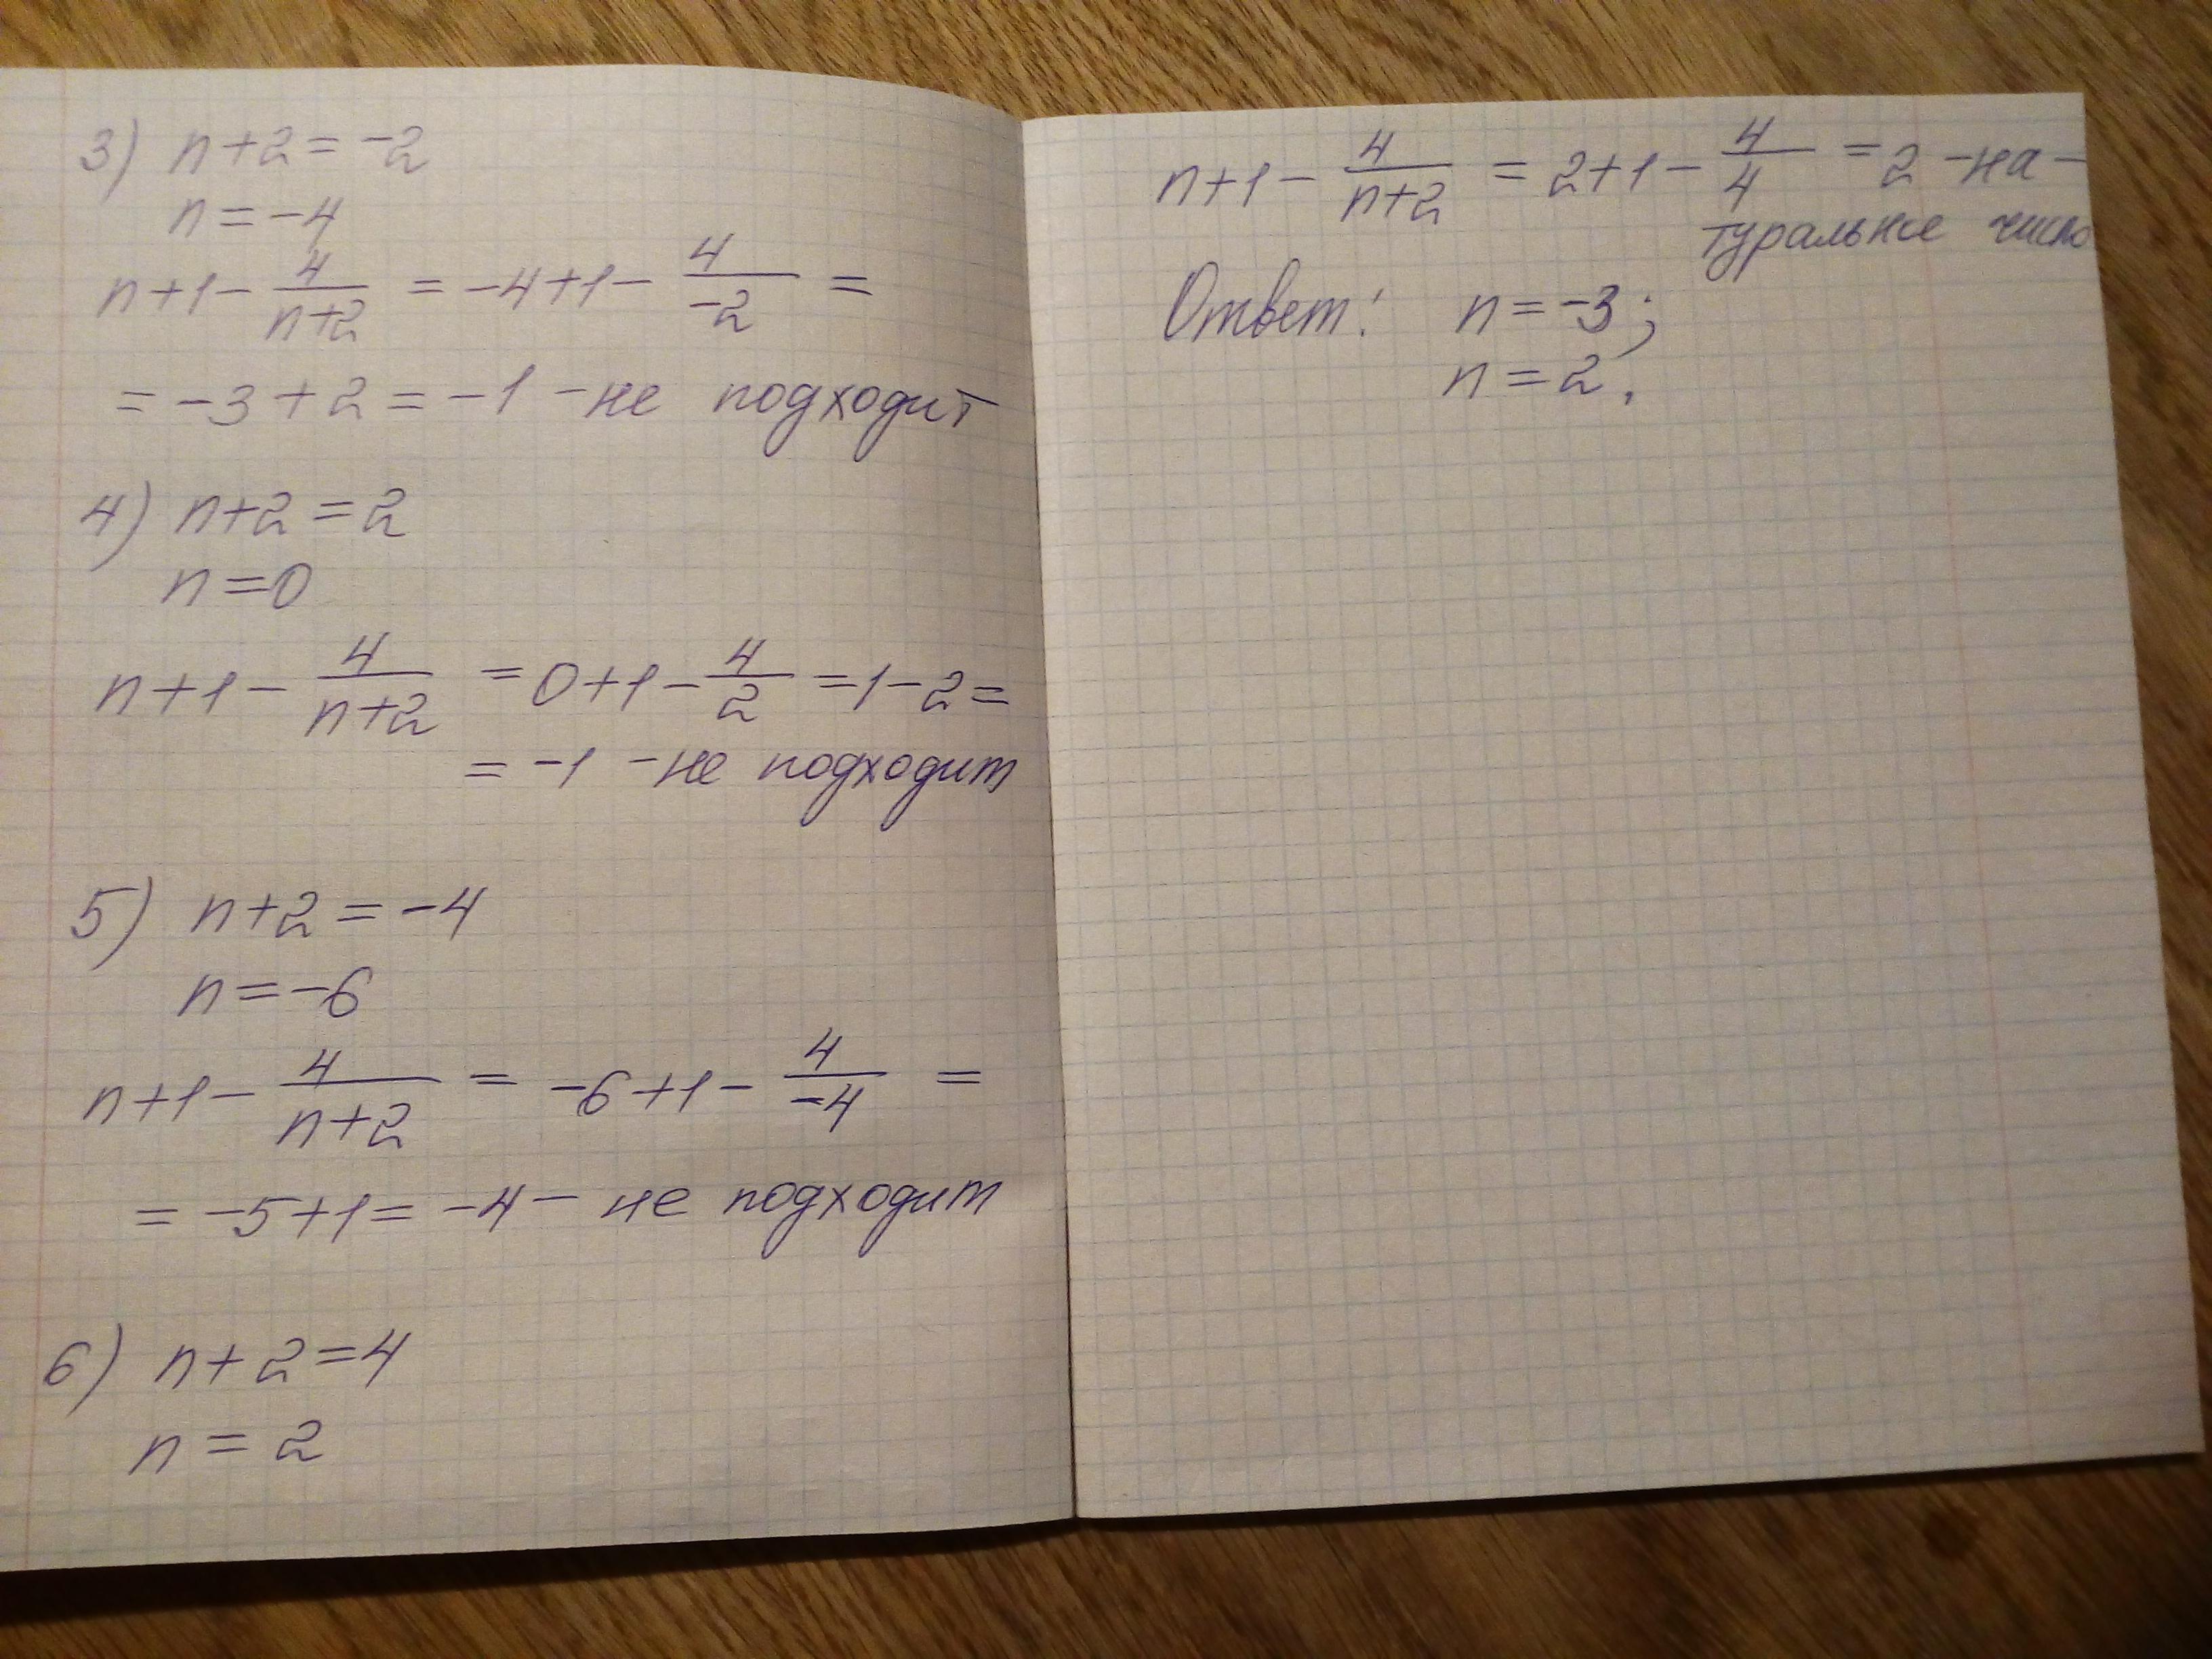 3) n+2=-2
n=-4
n+1-4/(n+2)=-4+1-4/(-2)=
=-3+2=-1 -не подходит
4) n+2=2
n=0
n+1-4/(n+2)=0+1-4/2=1-2=
=-1 -не подходит
5) n+2=-4
n=-6
n+1-4/(n+2)=-6+1-4/(-4)=
=-5+1=-4- не подходит
6) n+2=4
n=2
n+1-4/(n+2)=2+1-4/4=2 -на-
туральное число
Ответ: n=-3;
n=2.